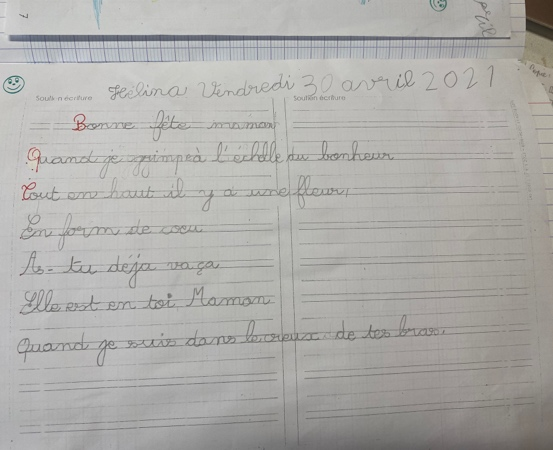 Hélina Vendredi 30 avril 2021
Soutien écriture
Soutien écriture
Bonne fête maman
Quand je grimpe à l'échelle du bonheur
Tout en haut il y a une fleur,
En form de coeu
As-tu déja va ça
Elle est en toi Maman
Quand je suis dans le creux de tes bras.